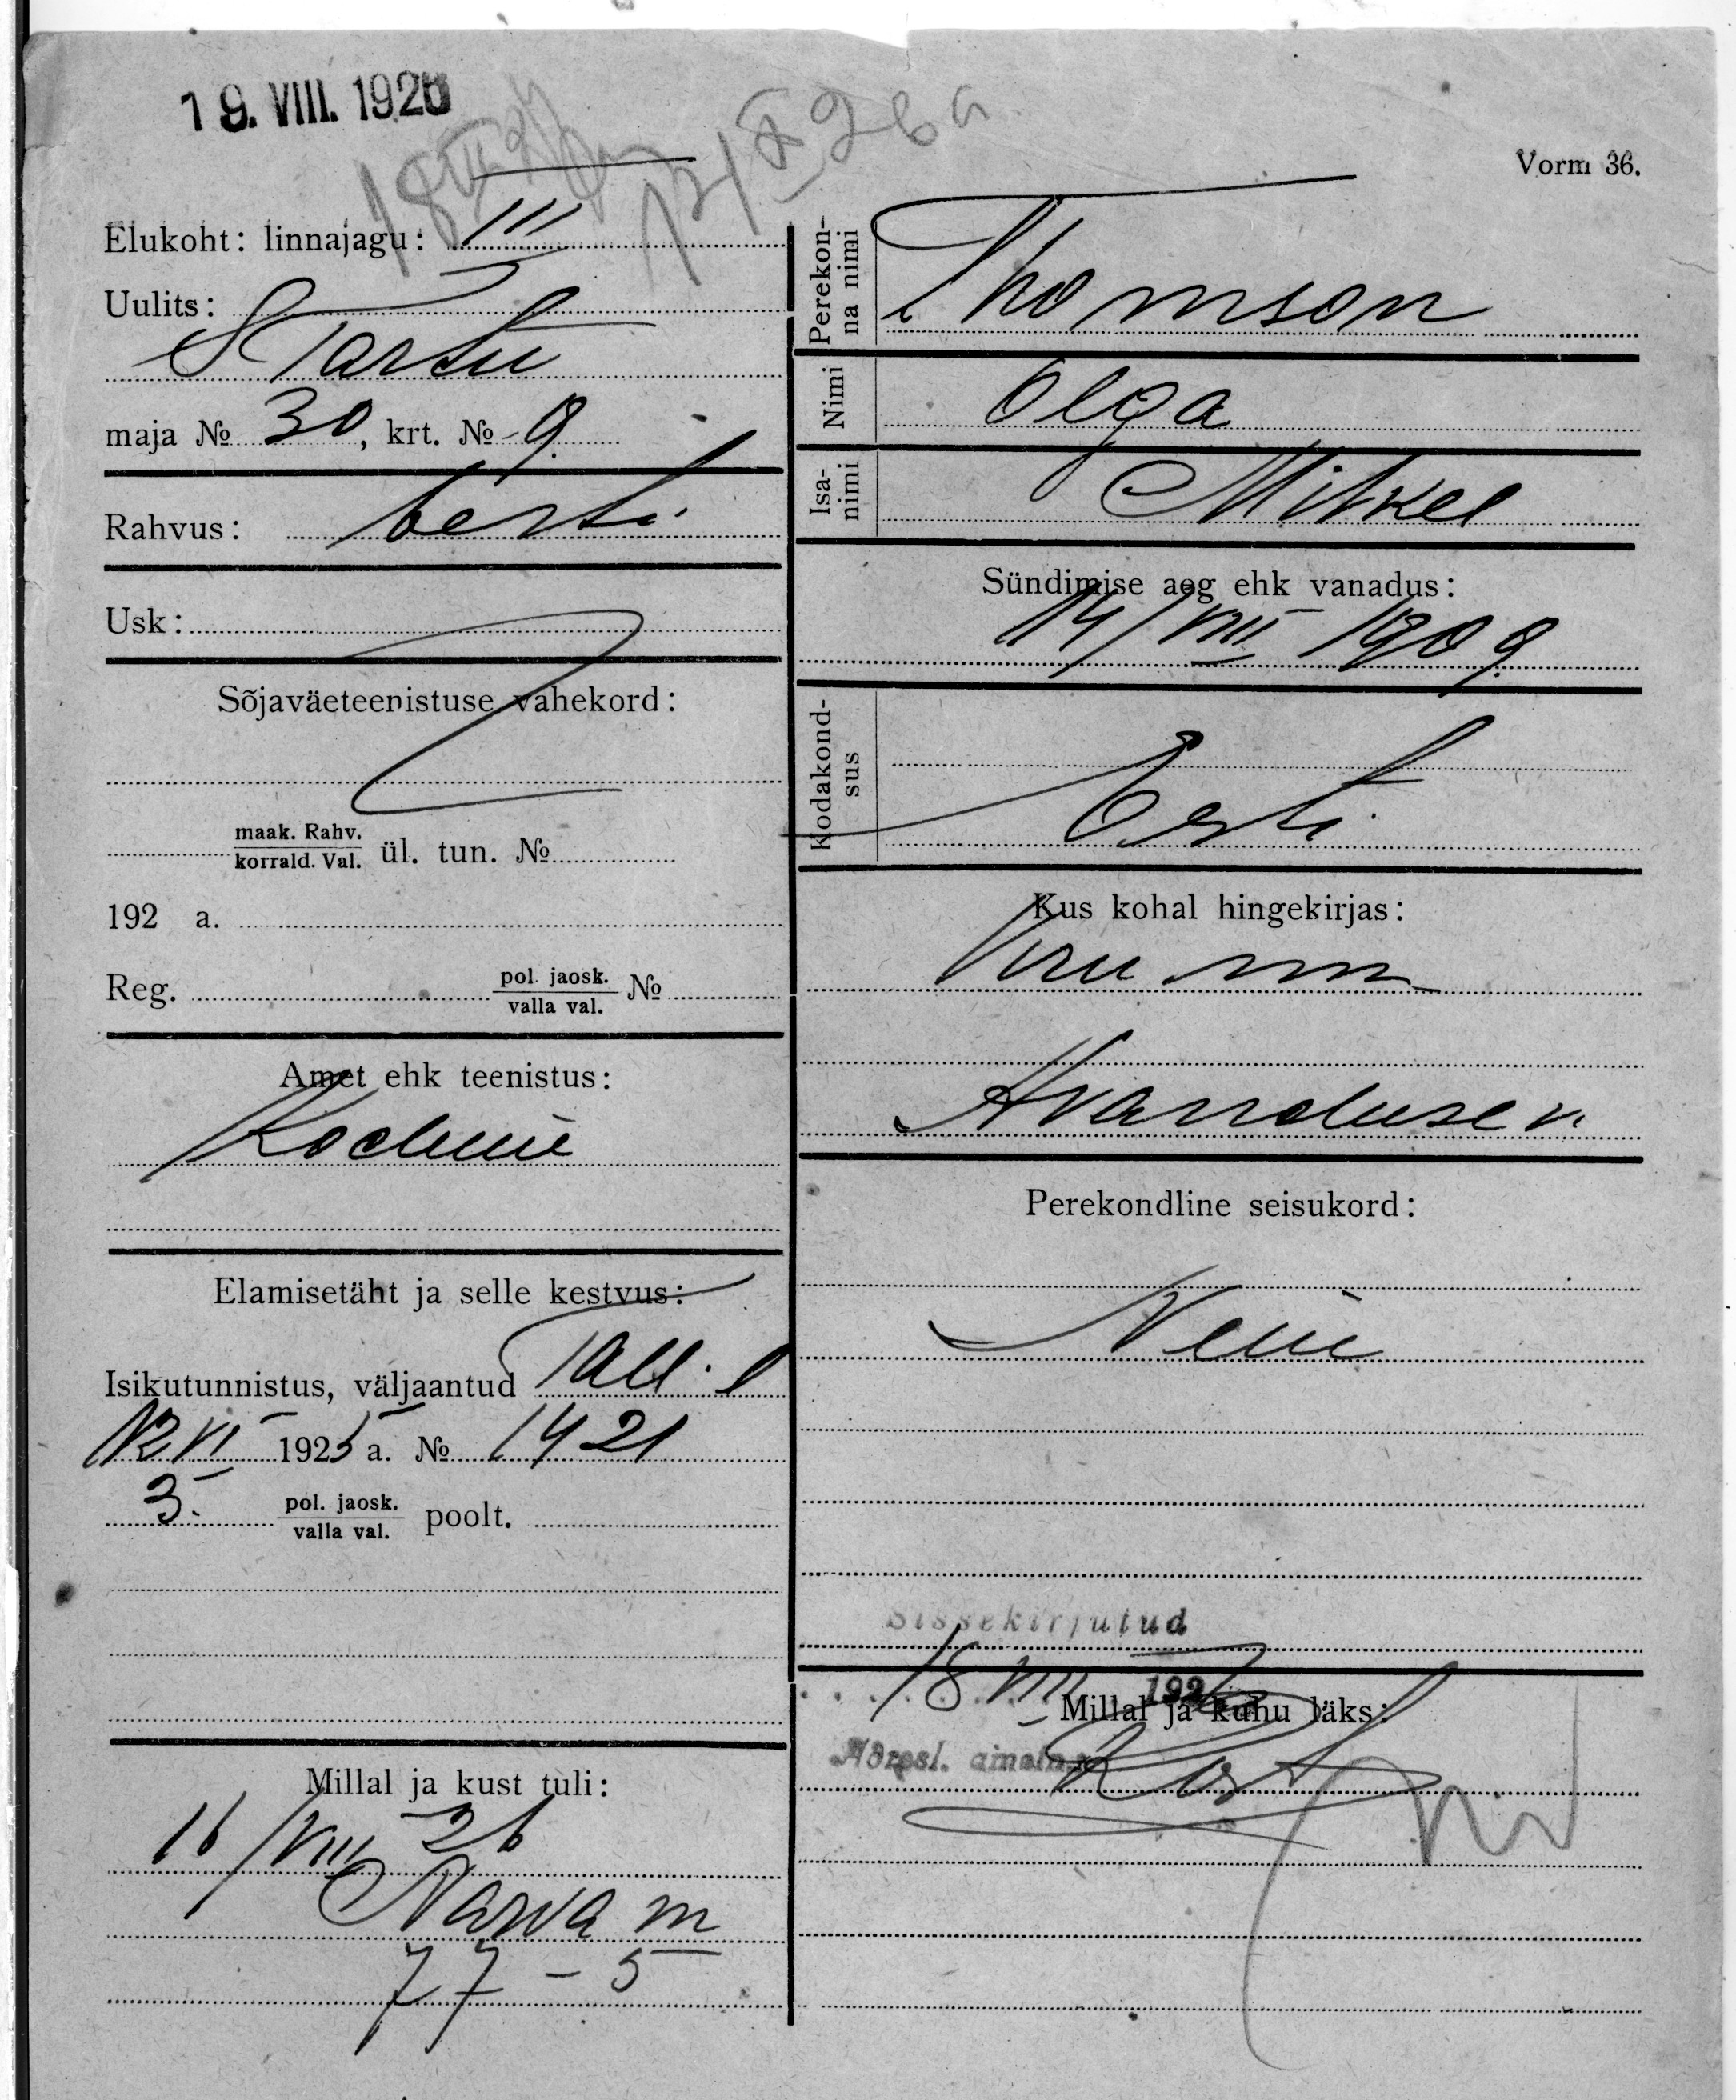 19. VIII. 1926
Vorm 36.
Elukoht: linnajagu: III
Uulits:
S Tartu
maja № 30, krt. № 9.
Rahvus: Eesti
Usk:
Sõjaväeteenistuse vahekord:
maak. Rahv.
korrald. Val. ül. tun. №
192 a.
Reg. pol. jaosk.
valla val. №
Amet ehk teenistus:
Kodune
Elamisetäht ja selle kestvus:
Isikutunnistus, väljaantud Tall. l
12 VI 1925 a. № 1421
3. pol. jaosk.
valla val. poolt.
Millal ja kust tuli:
16/VIII 26
Narva m
77 - 5
Perekon-
na nimi Thomson
Nimi Olga
Isa-
nimi Mihkel
Sündimise aeg ehk vanadus:
14/VIII 1909.
Kodakond-
sus Eesti
Kus kohal hingekirjas:
Viru mm
Avanduse v.
Perekondline seisukord:
Neiu
Sissekirjutud
18 VIII 192
Millal ja kuhu läks:
Adressl. ametn.